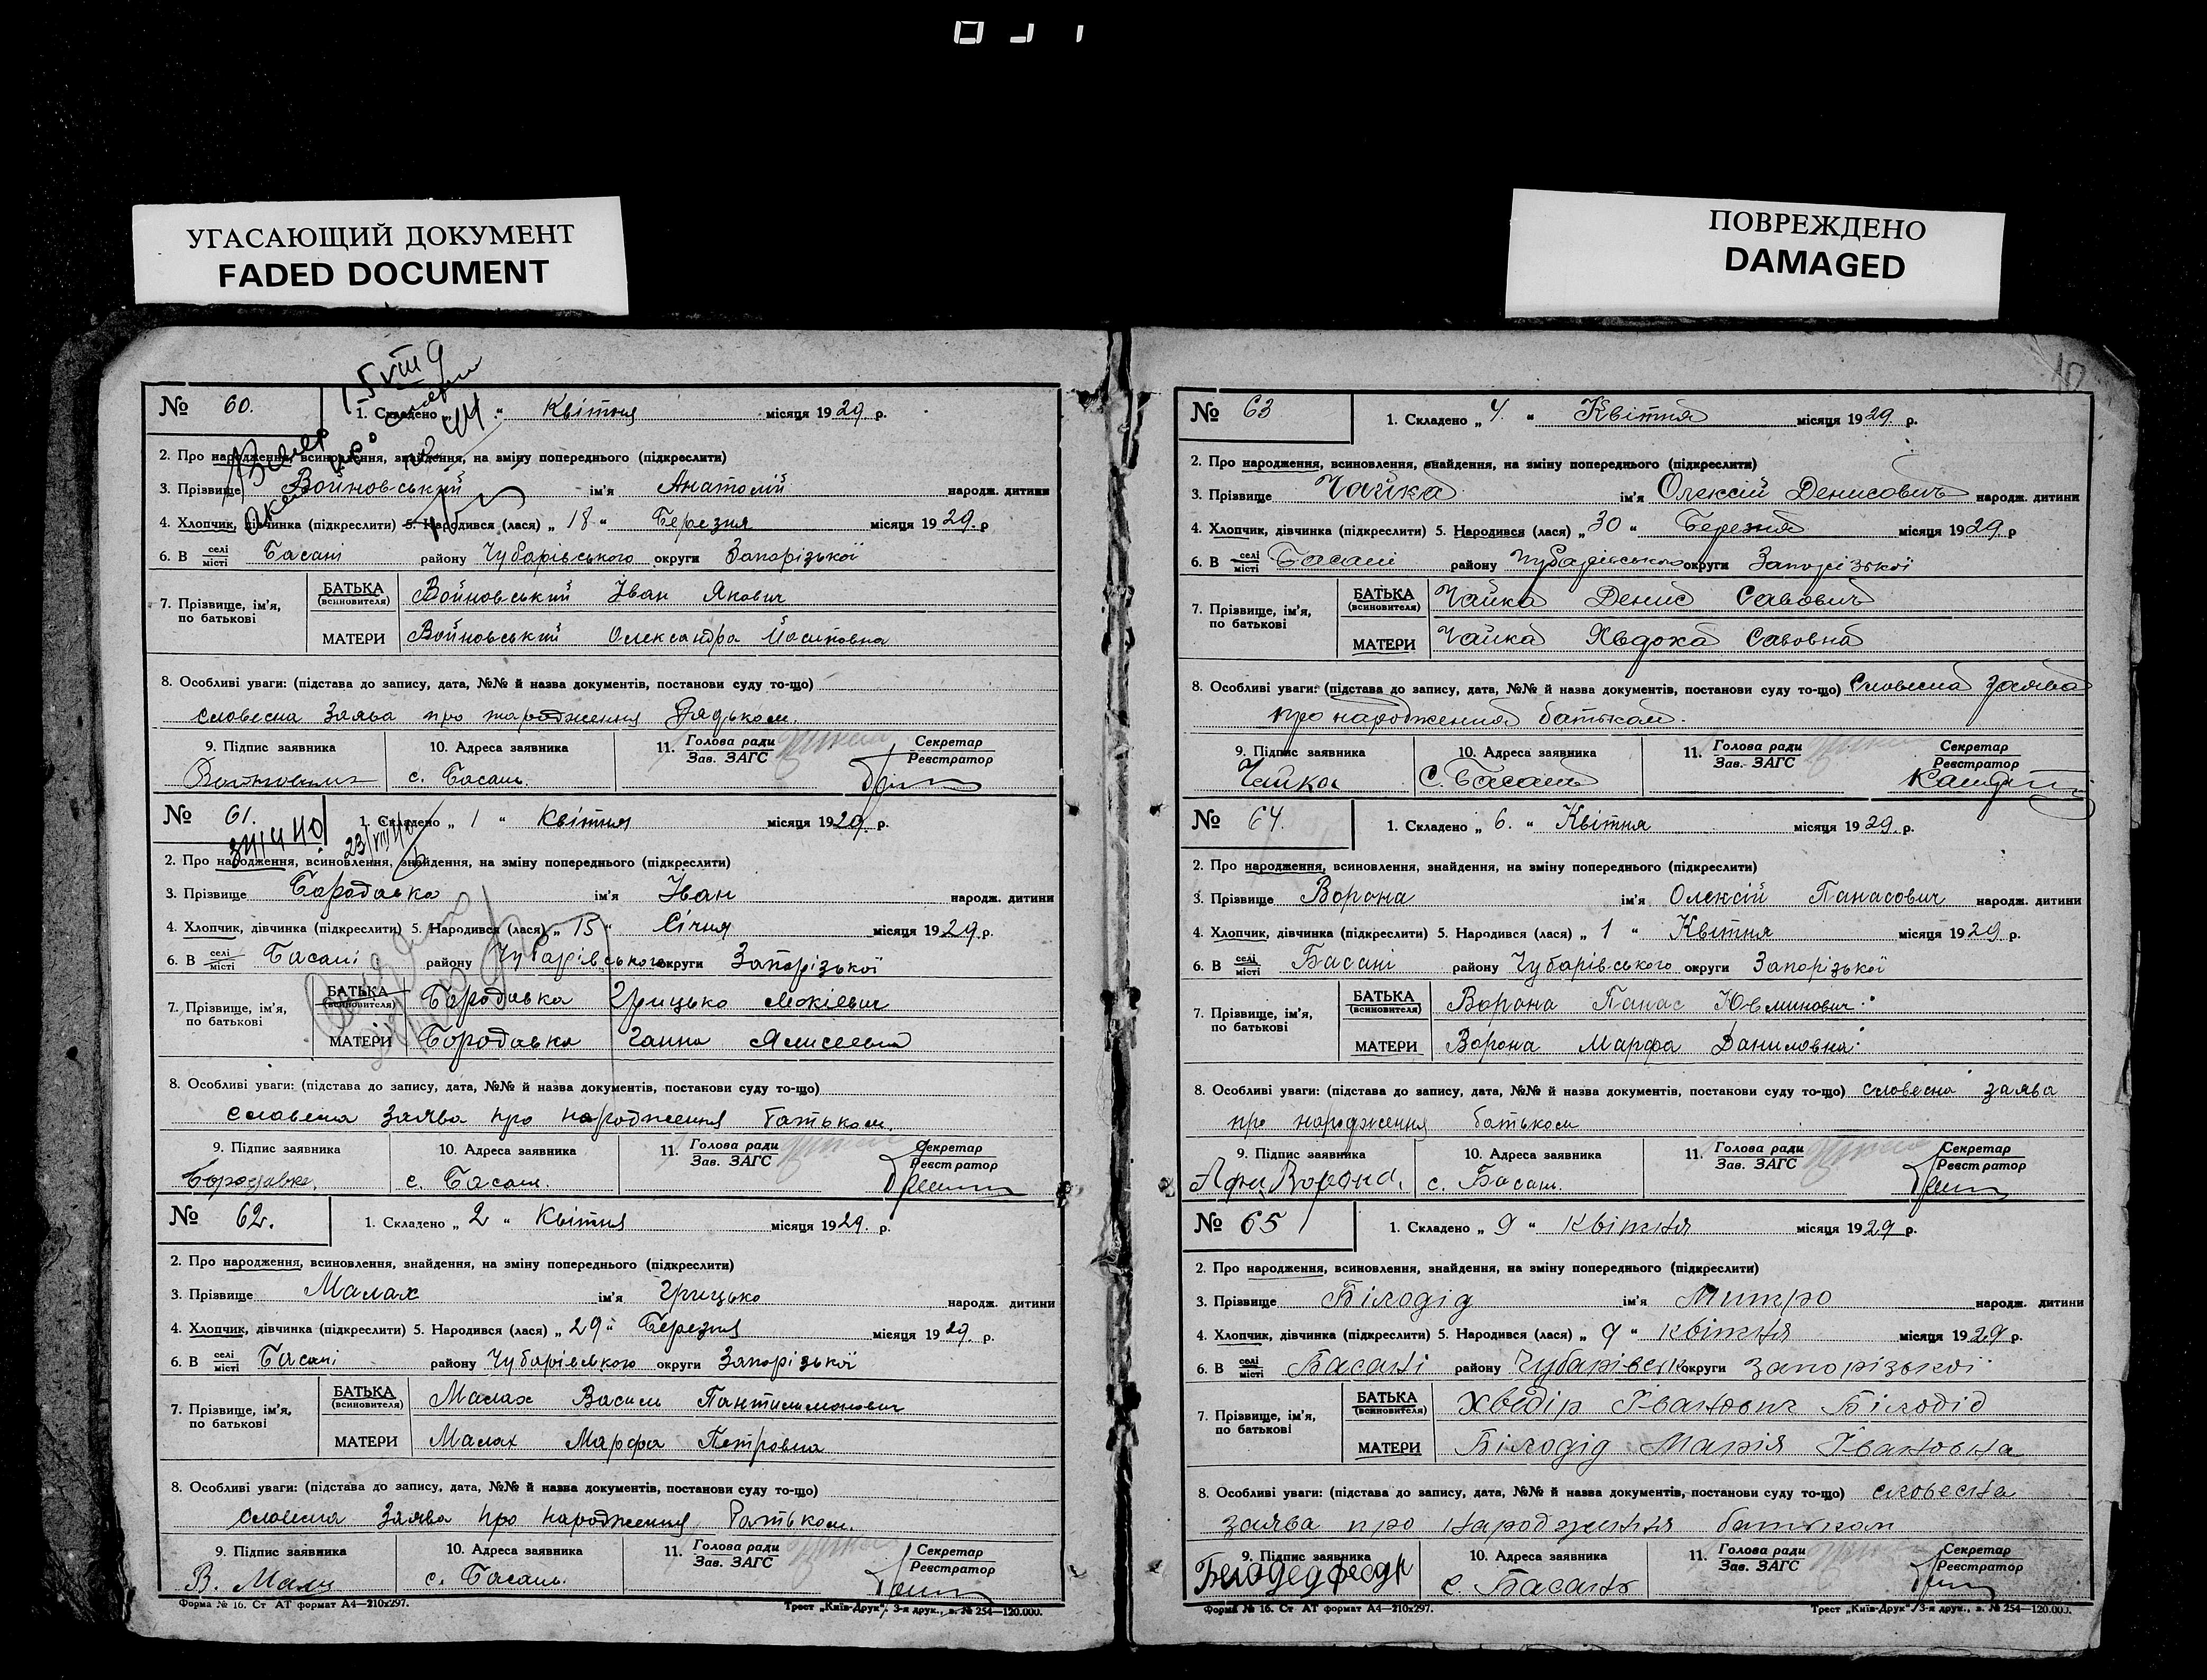 УГАСАЮЩИЙ ДОКУМЕНТ
FADED DOCUMENT
ПОВРЕЖДЕНО
DAMAGED
15 VIII 9
№ 60.
1. Складено „ “ Квітня місяця 1929. р.
2. Про народження, всиновлення, знайдення, на зміну попереднього (підкреслити)
3. Прізвище Войновський ім'я Анатолій народж. дитини
4. Хлопчик, дівчинка (підкреслити) 5. Народився (лася) „ 18 “ Березня місяця 1929. р
6. В селі/місті Басані району Чубарівського округи Запорізької
7. Прізвище, ім'я, по батькові
БАТЬКА (всиновителя) Войновський Іван Якович
МАТЕРИ Войновський Олександра Йосиповна
8. Особливі уваги: (підстава до запису, дата, №№ й назва документів, постанови суду то-що)
словесна Заява про народження Дядьком.
9. Підпис заявника
10. Адреса заявника с. Басань.
11. Голова ради Зав. ЗАГС
Секретар Реєстратор
№ 61.
1. Складено „ 1 “ Квітня місяця 1929. р.
23/VIII 40
2. Про народження, всиновлення, знайдення, на зміну попереднього (підкреслити)
3. Прізвище Бородавка ім'я Іван народж. дитини
4. Хлопчик, дівчинка (підкреслити) 5. Народився (лася) „ 15 “ Січня місяця 1929. р.
6. В селі/місті Басані району Чубарівського округи Запорізької
7. Прізвище, ім'я, по батькові
БАТЬКА (всиновителя) Бородавка Грицько Мокієвич
МАТЕРИ Бородавка Ганна
8. Особливі уваги: (підстава до запису, дата, №№ й назва документів, постанови суду то-що)
словесна Заява про народження батьком.
9. Підпис заявника Бородавка.
10. Адреса заявника с. Басань.
11. Голова ради Зав. ЗАГС
Секретар Реєстратор
№ 62.
1. Складено „ 2 “ Квітня місяця 1929. р.
2. Про народження, всиновлення, знайдення, на зміну попереднього (підкреслити)
3. Прізвище Малах ім'я Грицько народж. дитини
4. Хлопчик, дівчинка (підкреслити) 5. Народився (лася) „ 29 “ Березня місяця 1929. р.
6. В селі/місті Басані району Чубарівського округи Запорізької
7. Прізвище, ім'я, по батькові
БАТЬКА (всиновителя) Малах Василь Пантилимонович
МАТЕРИ Малах Марфа Петровна
8. Особливі уваги: (підстава до запису, дата, №№ й назва документів, постанови суду то-що)
словесна Заява про народження батьком.
9. Підпис заявника В. Мала
10. Адреса заявника с. Басань.
11. Голова ради Зав. ЗАГС
Секретар Реєстратор
Форма № 16. Ст АТ формат А4—210х297.
Трест „Київ-Друк“. 3-я друк., в. № 254—120.000.
№ 63
1. Складено „ 4. “ Квітня місяця 1929. р.
2. Про народження, всиновлення, знайдення, на зміну попереднього (підкреслити)
3. Прізвище Чайка ім'я Олексій Денисович народж. дитини
4. Хлопчик, дівчинка (підкреслити) 5. Народився (лася) „ 30 “ Березня місяця 1929. р
6. В селі/місті Басані району Чубарівського округи Запорізької
7. Прізвище, ім'я, по батькові
БАТЬКА (всиновителя) Чайка Денис Савович
МАТЕРИ Чайка Хвдоха Савовна
8. Особливі уваги: (підстава до запису, дата, №№ й назва документів, постанови суду то-що) Словесна заява
про народження батьком.
9. Підпис заявника Чайка
10. Адреса заявника С. Басань
11. Голова ради Зав. ЗАГС
Секретар Реєстратор
№ 64.
1. Складено „ 6. “ Квітня місяця 1929. р.
2. Про народження, всиновлення, знайдення, на зміну попереднього (підкреслити)
3. Прізвище Ворона ім'я Олексій Панасович народж. дитини
4. Хлопчик, дівчинка (підкреслити) 5. Народився (лася) „ 1 “ Квітня місяця 1929. р.
6. В селі/місті Басані району Чубарівського округи Запорізької
7. Прізвище, ім'я, по батькові
БАТЬКА (всиновителя) Ворона Панас
МАТЕРИ Ворона Марфа Даниловна
8. Особливі уваги: (підстава до запису, дата, №№ й назва документів, постанови суду то-що) словесна заява
про народження батьком
9. Підпис заявника Ворона.
10. Адреса заявника с. Басань.
11. Голова ради Зав. ЗАГС
Секретар Реєстратор
№ 65
1. Складено „ 9 “ квітня місяця 1929 р.
2. Про народження, всиновлення, знайдення, на зміну попереднього (підкреслити)
3. Прізвище Білодід ім'я Митро народж. дитини
4. Хлопчик, дівчинка (підкреслити) 5. Народився (лася) „ 9 “ квітня місяця 1929 р.
6. В селі/місті Басані району Чубарівськ округи запорізької
7. Прізвище, ім'я, по батькові
БАТЬКА (всиновителя) Хведір Іванович Білодід
МАТЕРИ Білодід Марія Івановна
8. Особливі уваги: (підстава до запису, дата, №№ й назва документів, постанови суду то-що) словесна
заява про народження батьком
9. Підпис заявника
10. Адреса заявника с. Басань
11. Голова ради Зав. ЗАГС
Секретар Реєстратор
Форма № 16. Ст АТ формат А4—210х297.
Трест „Київ-Друк“. 3-я друк., в. № 254—120.000.